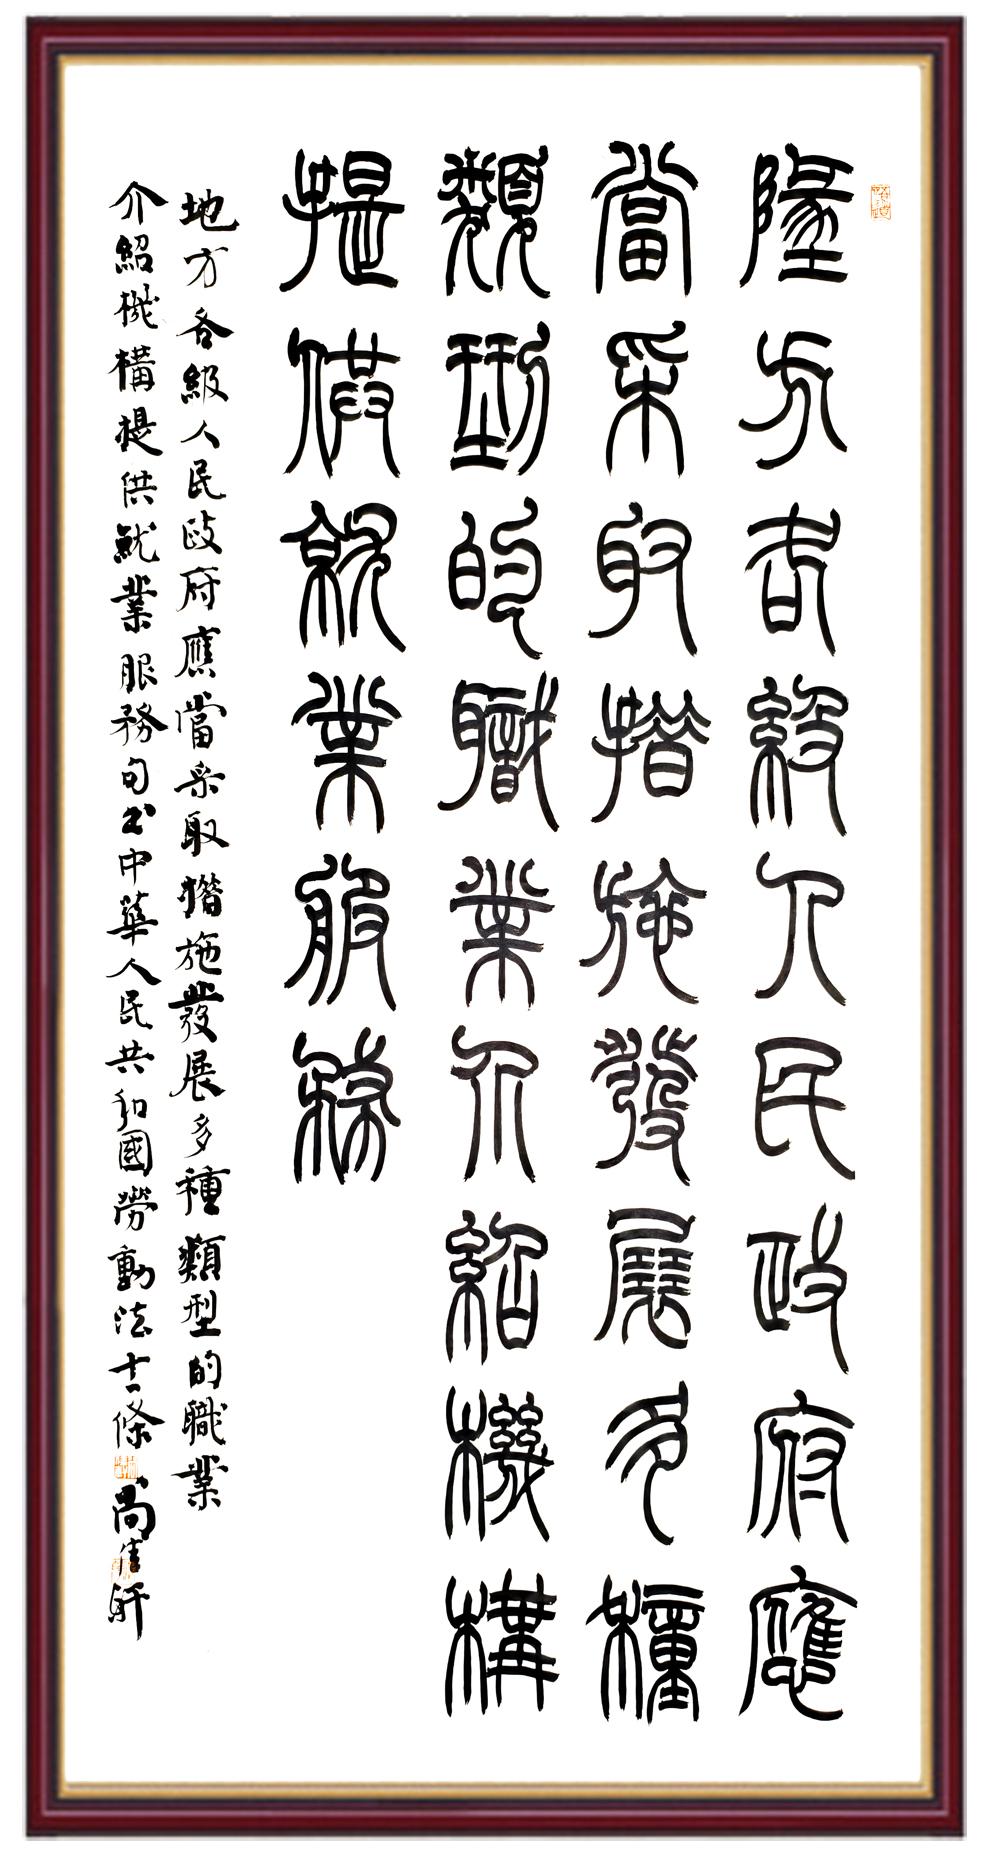 地方各級人民政府應
當采取措施發展多種
類型的職業介紹機構
提供就業服務
地方各級人民政府應當采取措施發展多種類型的職業
介紹機構提供就業服務句出中華人民共和國勞動法十一條